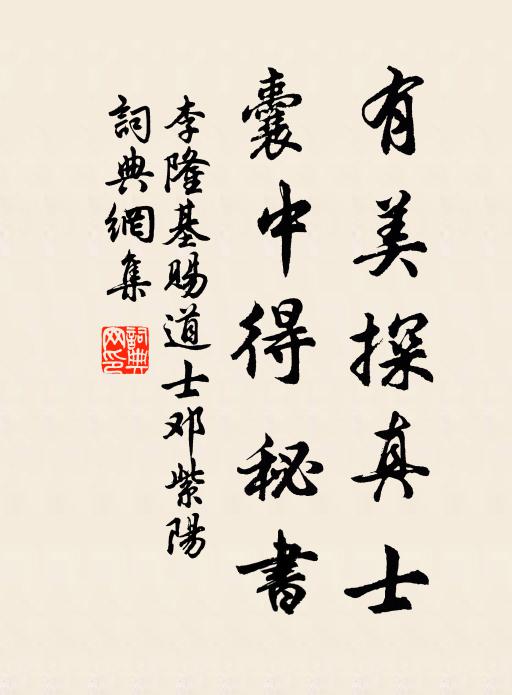 有美探真士
囊中得秘書
李隆基賜道士邓紫陽
詞典網集
詞典网印